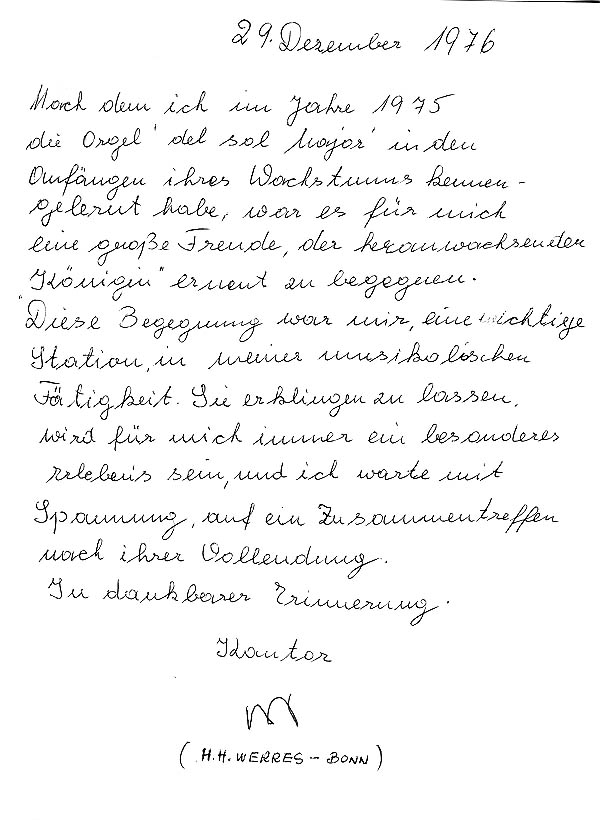 29. Dezember 1976
Nach dem ich im Jahre 1975
die Orgel 'del sol Mayor' in den
Anfängen ihres Wachstums kennen-
gelernt habe, war es für mich
eine große Freude, der heranwachsenden
"Königin" erneut zu begegnen.
Diese Begegnung war mir, eine wichtige
Station, in meiner musikalischen
Tätigkeit. Sie erklingen zu lassen,
wird für mich immer ein besonderes
Erlebnis sein, und ich warte mit
Spannung, auf ein Zusammentreffen
nach ihrer Vollendung.
In dankbarer Erinnerung.
Kantor
(H.H. WERRES - BONN)